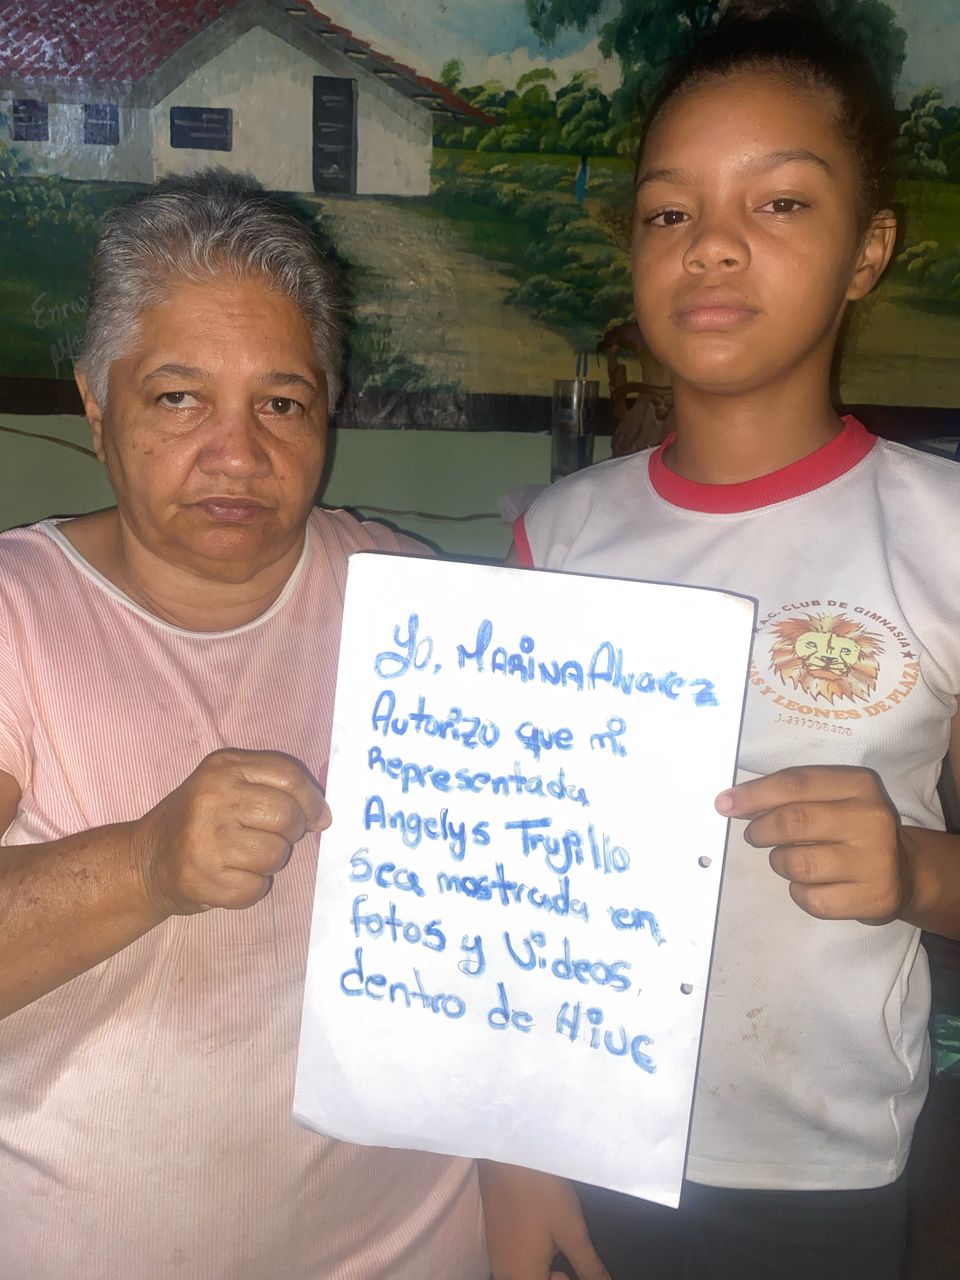 Yo, MARINA Alvarez
Autorizo que mi
Representada
Angelys Trujillo
Sea mostrada en
fotos y Videos
dentro de Hive
A.C. CLUB DE GIMNASIA
Y LEONES DE PLAZA
Enriq